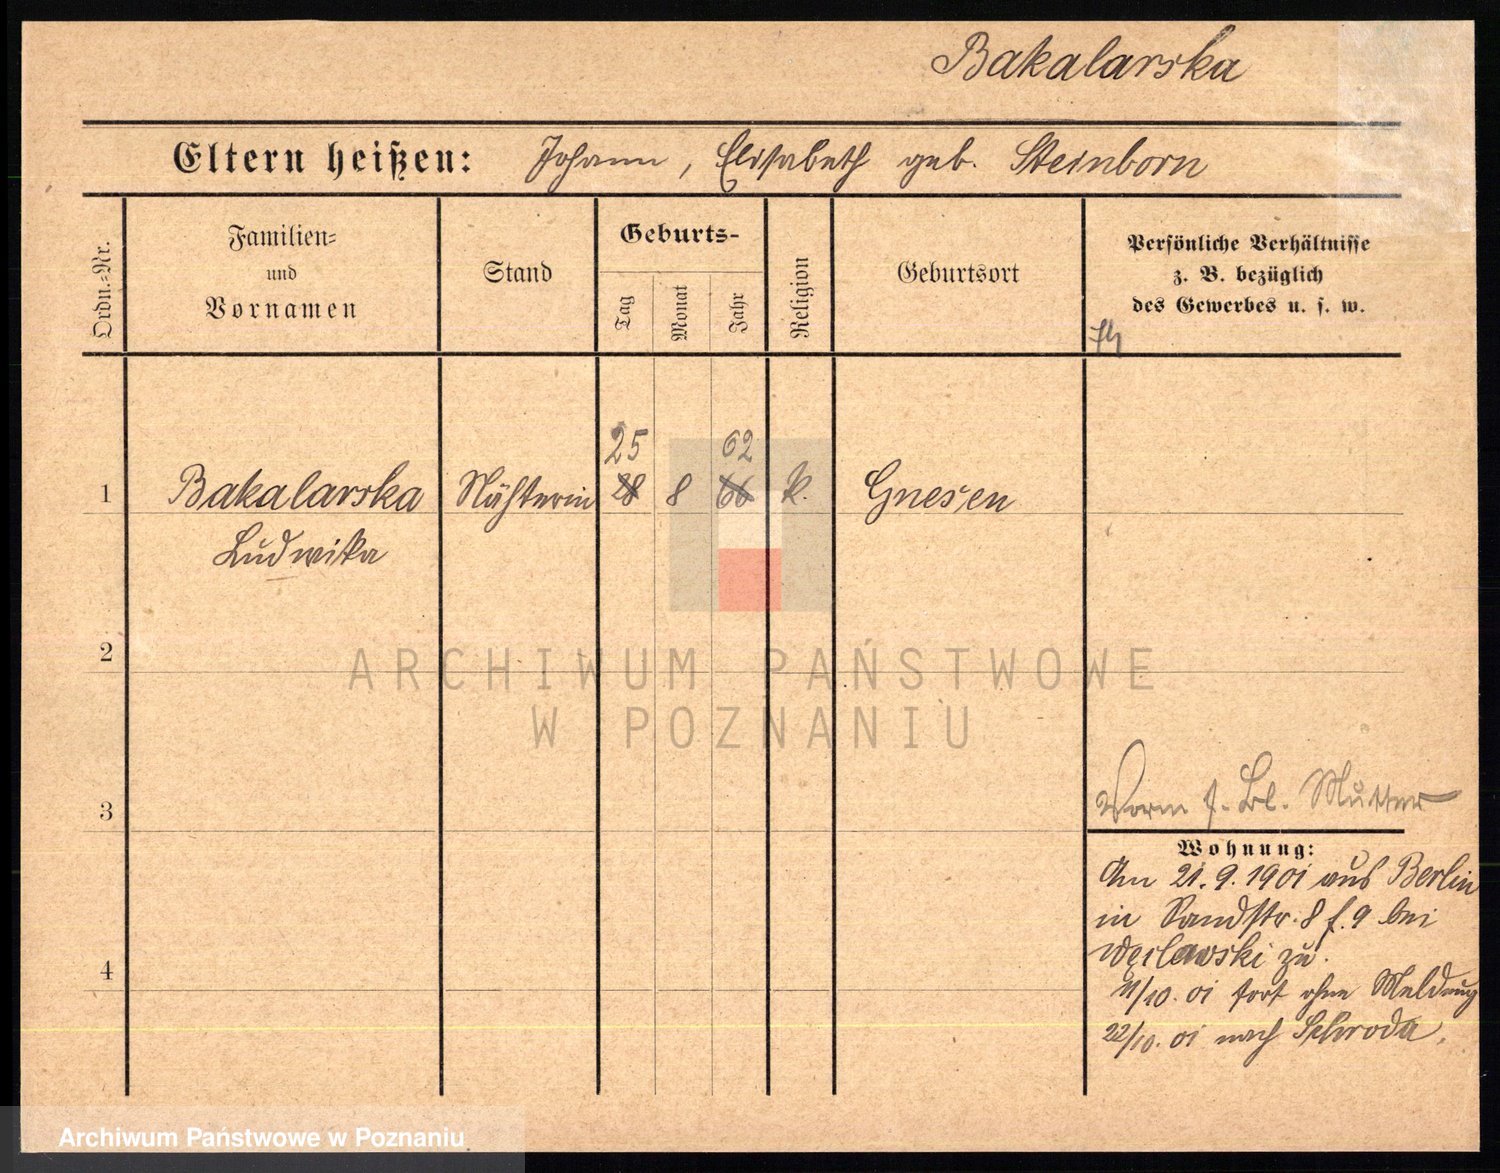 Bakalarska
Eltern heißen: Johann, Elisabeth geb. Steinborn
Ordn.=Nr.
Familien=
und
Vornamen
Stand
Geburts-
Tag
Monat
Jahr
Religion
Geburtsort
Persönliche Verhältnisse
z. B. bezüglich
des Gewerbes u. s. w.
25 62
1 Bakalarska Nähterin 28 8 66 k. Gnesen
Ludwika
2
ARCHIWUM PAŃSTWOWE
W POZNANIU
3
Mutter
Wohnung:
Am 21.9.1901 aus Berlin
in Sandstr. 8 f. 9 bei
zu.
11/10. 01 fort ohne Meldung
22/10. 01 nach Schroda.
4
Archiwum Państwowe w Poznaniu